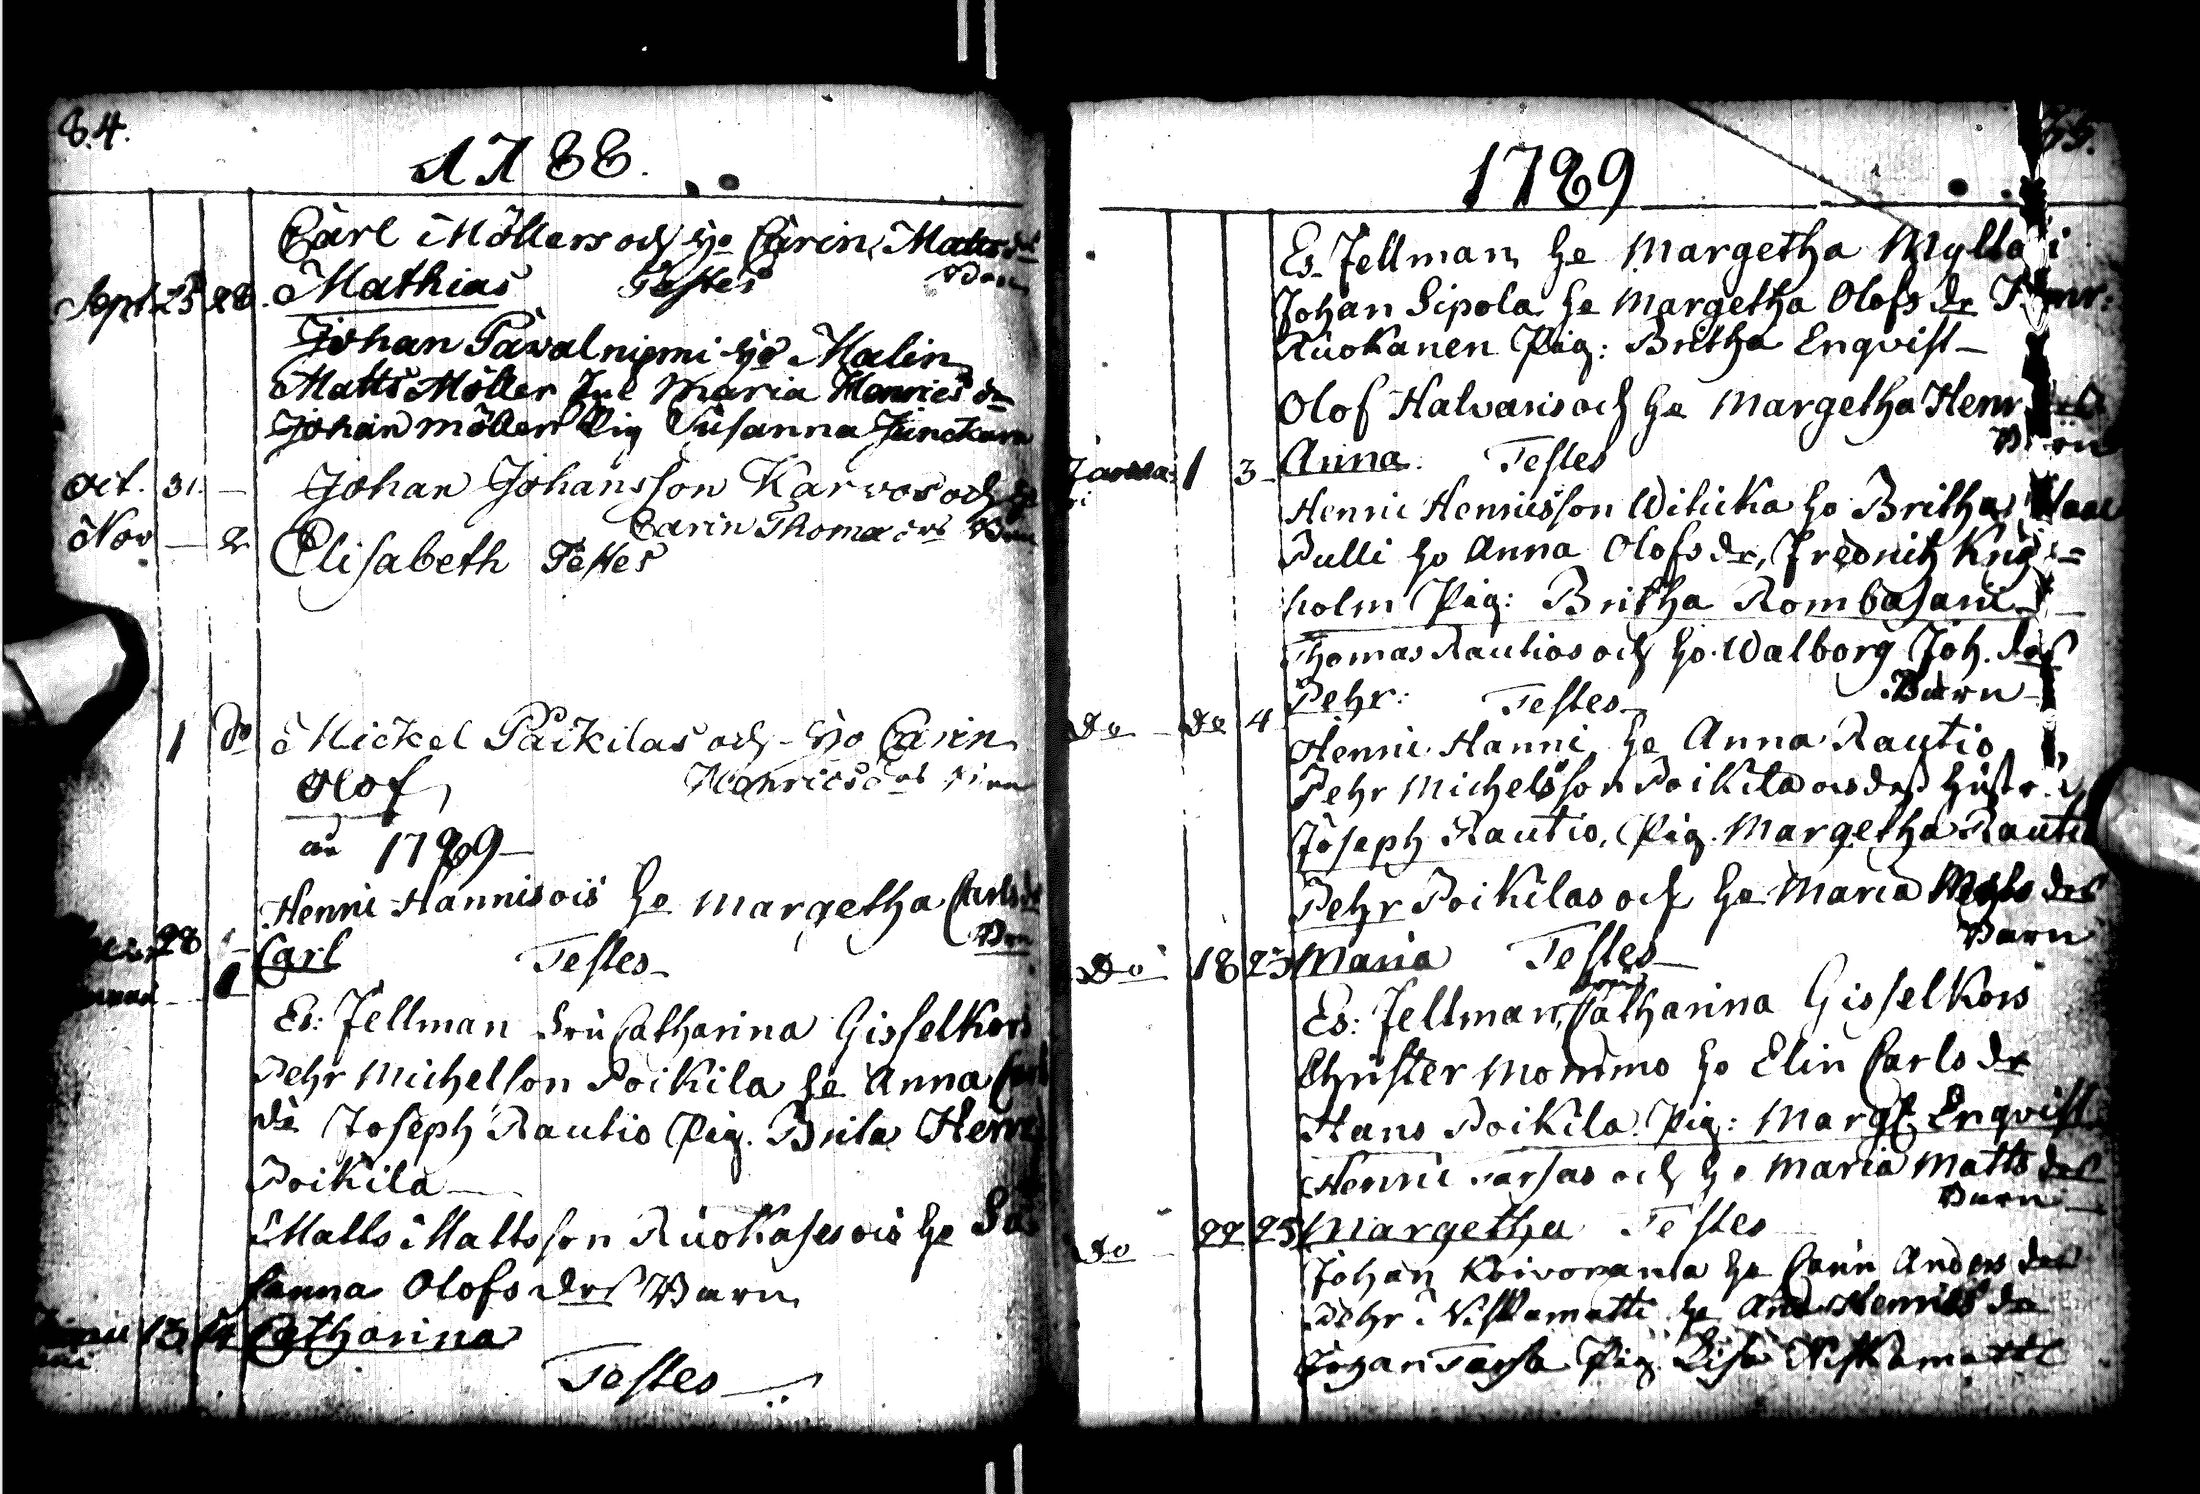 84.
1788.
Carl Möllers och Ho Carin Matts dr
Barn
Sept 25 28. Mathias Testes
Johan Pavalniemi Ho Malin
Matts Möller Maria Henrics dr
Johan Möller Pig Susanna Junckara
Oct. 31. — Johan Johansson Karvos och Ho
Carin Thomæ drs Barn
Nov — 2 Elisabeth Testes
1 do Mickel Päikilas och Ho Carin
Olof Henrics drs Barn
1789 —
Henric Hannisois Ho Margetha Carls dr
Barn
28 1 Carl Testes —
Es: Fellman Fru Catharina Gisselkors
Pehr Michelson Poikila Ho Anna
dr Joseph Rautio Pig. Brita Henr
Poikila —
Matts Mattsson Ruokasesois Ho Su
sanna Olofs drs Barn
13 14 Catharina
Testes —
1789
Es. Fellman Ho Margetha Myllari
Johan Sipola Ho Margetha Olofs dr
Ruokanen Pig: Britha Enqvist —
Olof Halvaris och Ho Margetha Henr
Barn
Januari 1 3 Anna. Testes
Henric Henricsson Wilicka Ho Britha
Pulli Ho Anna Olofs dr,
holm Pig: Britha Rombasani —
Thomas Rautios och Ho Walborg Joh. drs
Barn —
do — do 4 Pehr: Testes —
Henric Hanni, Ho Anna Rautio
Pehr Michelsson Poikila och dess Hustr
Joseph Rautio, Pig. Margetha Rautio
Pehr Poikilas och Ho Maria Mats drs
Barn
Do 18 23 Maria Testes —
Fru
Es: Fellman, Catharina Gisselkors
Christer Mommo Ho Elin Carls dr
Hans Poikila. Pig: Margt. Enqvist
Henric Tarsas och Ho Maria Matts drs
Barn —
do — 22 25 Margetha Testes
Johan Koivoranta Ho Carin Anders dr
Pehr Niskamatti Ho Anna Henrics dr
Johan Tarsa Pig. Lisa Niskamatti